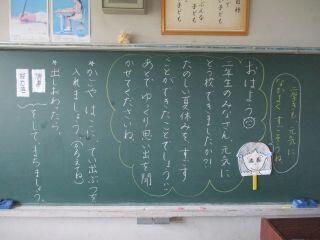 二学きも、元気に
なかよく すごそうね。
おはよう
二年生のみなさん、元気に
とう校できましたか?!
たのしい夏休みを、すごす
ことができたことでしょう!!
あとで ゆっくり 思い出を聞
かせてくださいね。
☆かごや はこに、てい出ぶつを
入れましょう。
☆出しおわったら、
をして まちましょう。